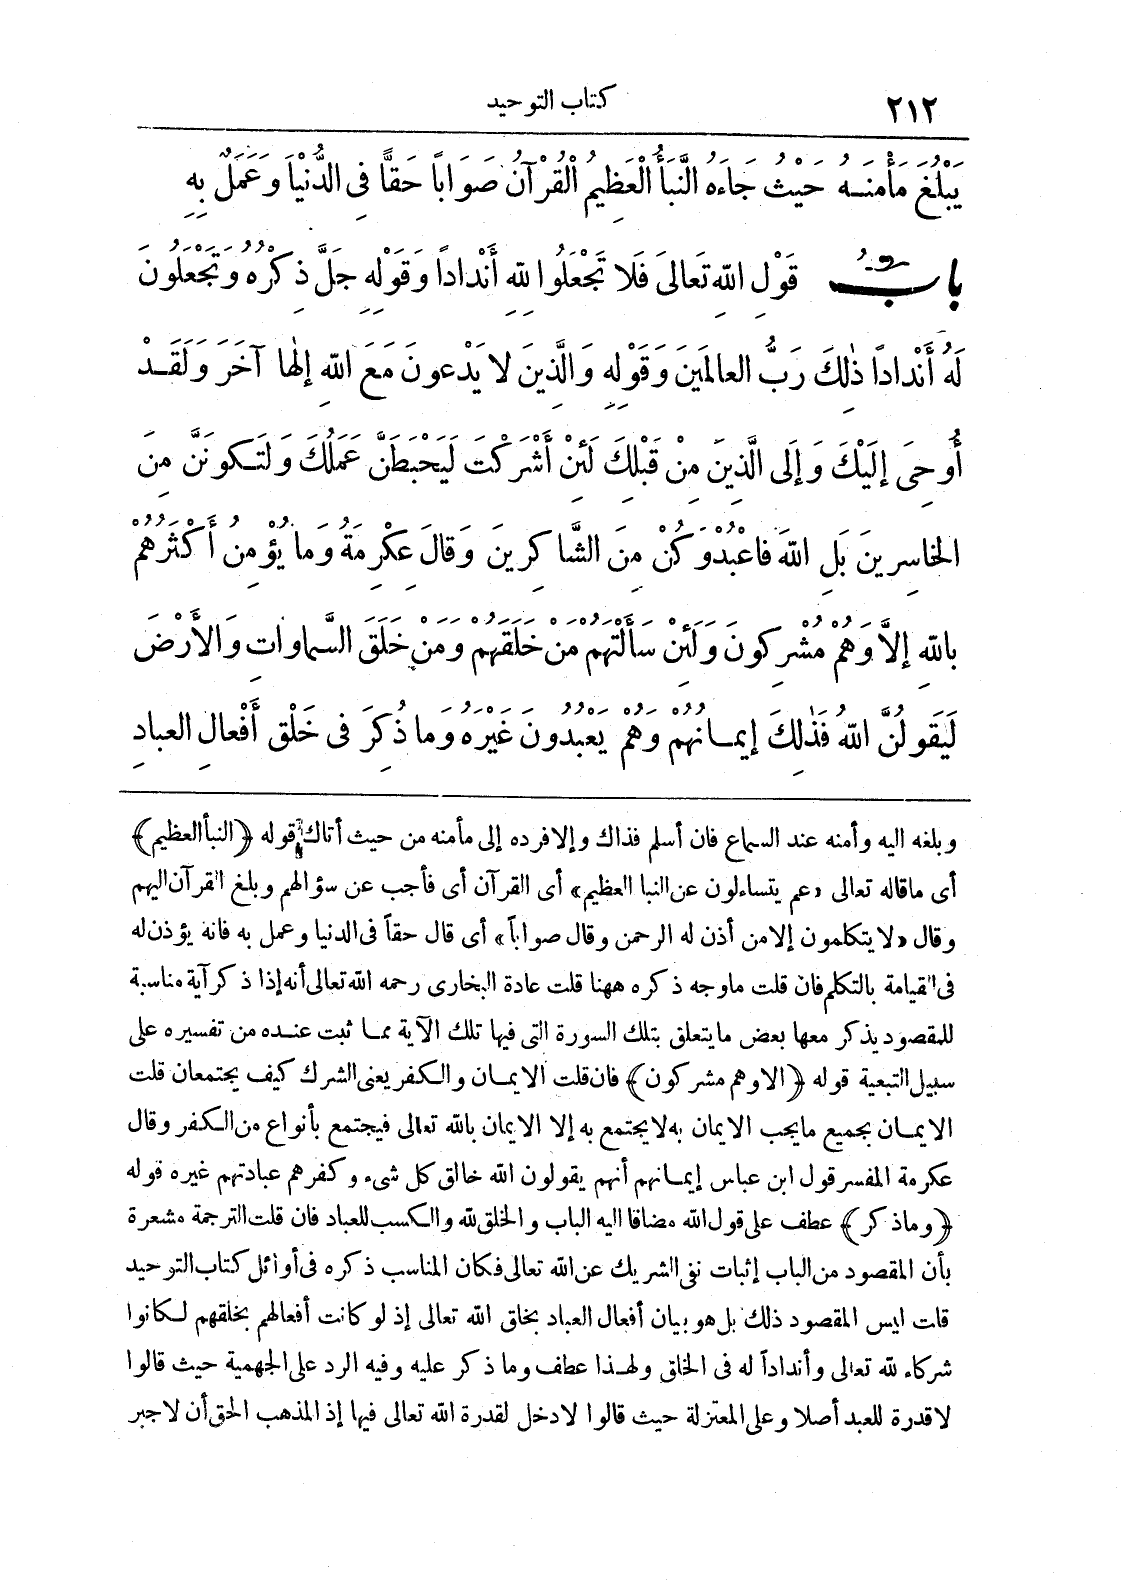 ٢١٢
كتاب التوحيد
يَبْلُغَ مَأْمَنَهُ حَيْثُ جَاءَهُ النَّبَأُ الْعَظِيمُ الْقُرْآنُ صَوَاباً حَقًّا فِى الدُّنْيَا وَعَمَلٌ بِهِ
بابُ قَوْلِ اللهِ تَعَالَى فَلَا تَجْعَلُوا لِلهِ أَنْدَاداً وَقَوْلِهِ جَلَّ ذِكْرُهُ وَتَجْعَلُونَ
لَهُ أَنْدَاداً ذٰلِكَ رَبُّ العالَمِينَ وَقَوْلِهِ وَالَّذِينَ لا يَدْعونَ مَعَ اللهِ إِلٰهاً آخَرَ وَلَقَدْ
أُوحِىَ إِلَيْكَ وَإِلَى الَّذِينَ مِنْ قَبْلِكَ لَئِنْ أَشْرَكْتَ لَيَحْبَطَنَّ عَمَلُكَ وَلَتَكونَنَّ مِنَ
الخاسِرِينَ بَلِ اللهَ فاعْبُدْ وَكُنْ مِنَ الشَّاكِرِينَ وَقالَ عِكْرِمَةُ وَما يُؤْمِنُ أَكْثَرُهُمْ
بِاللهِ إِلاَّ وَهُمْ مُشْرِكُونَ وَلَئِنْ سَأَلْتَهُمْ مَنْ خَلَقَهُمْ وَمَنْ خَلَقَ السَّماوَاتِ وَالأَرْضَ
لَيَقولُنَّ اللهُ فَذٰلِكَ إِيمانُهُمْ وَهُمْ يَعْبُدُونَ غَيْرَهُ وَما ذُكِرَ فى خَلْقِ أَفْعالِ العِبادِ
وبلغه اليه وأمنه عند السماع فان أسلم فذاك وإلا فرده إلى مأمنه من حيث أتاك قوله ﴿النبأ العظيم﴾
أى ماقاله تعالى «عم يتساءلون عن النبا العظيم» أى القرآن أى فأجب عن سؤالهم وبلغ القرآن اليهم
وقال «لا يتكلمون إلا من أذن له الرحمن وقال صواباً» أى قال حقاً فى الدنيا وعمل به فانه يؤذن له
فى القيامة بالتكلم فان قلت ماوجه ذكره ههنا قلت عادة البخارى رحمه الله تعالى أنه إذا ذكر آية مناسبة
للمقصود يذكر معها بعض مايتعلق بتلك السورة التى فيها تلك الآية مما ثبت عنده من تفسيره على
سبيل التبعية قوله ﴿الا وهم مشركون﴾ فان قلت الايمان والكفر يعنى الشرك كيف يجتمعان قلت
الايمان بجميع مايجب الايمان به لا يجتمع به إلا الايمان بالله تعالى فيجتمع بأنواع من الكفر وقال
عكرمة المفسر قول ابن عباس إيمانهم أنهم يقولون الله خالق كل شىء وكفرهم عبادتهم غيره قوله
﴿وماذكر﴾ عطف على قول الله مضافا اليه الباب والخلق لله والكسب للعباد فان قلت الترجمة مشعرة
بأن المقصود من الباب إثبات نفى الشريك عن الله تعالى فكان المناسب ذكره فى أوائل كتاب التوحيد
قلت ليس المقصود ذلك بل هو بيان أفعال العباد بخلق الله تعالى إذ لو كانت أفعالهم بخلقهم لكانوا
شركاء لله تعالى وأنداداً له فى الخلق ولهذا عطف وما ذكر عليه وفيه الرد على الجهمية حيث قالوا
لا قدرة للعبد أصلا وعلى المعتزلة حيث قالوا لا دخل لقدرة الله تعالى فيها إذ المذهب الحق أن لا جبر